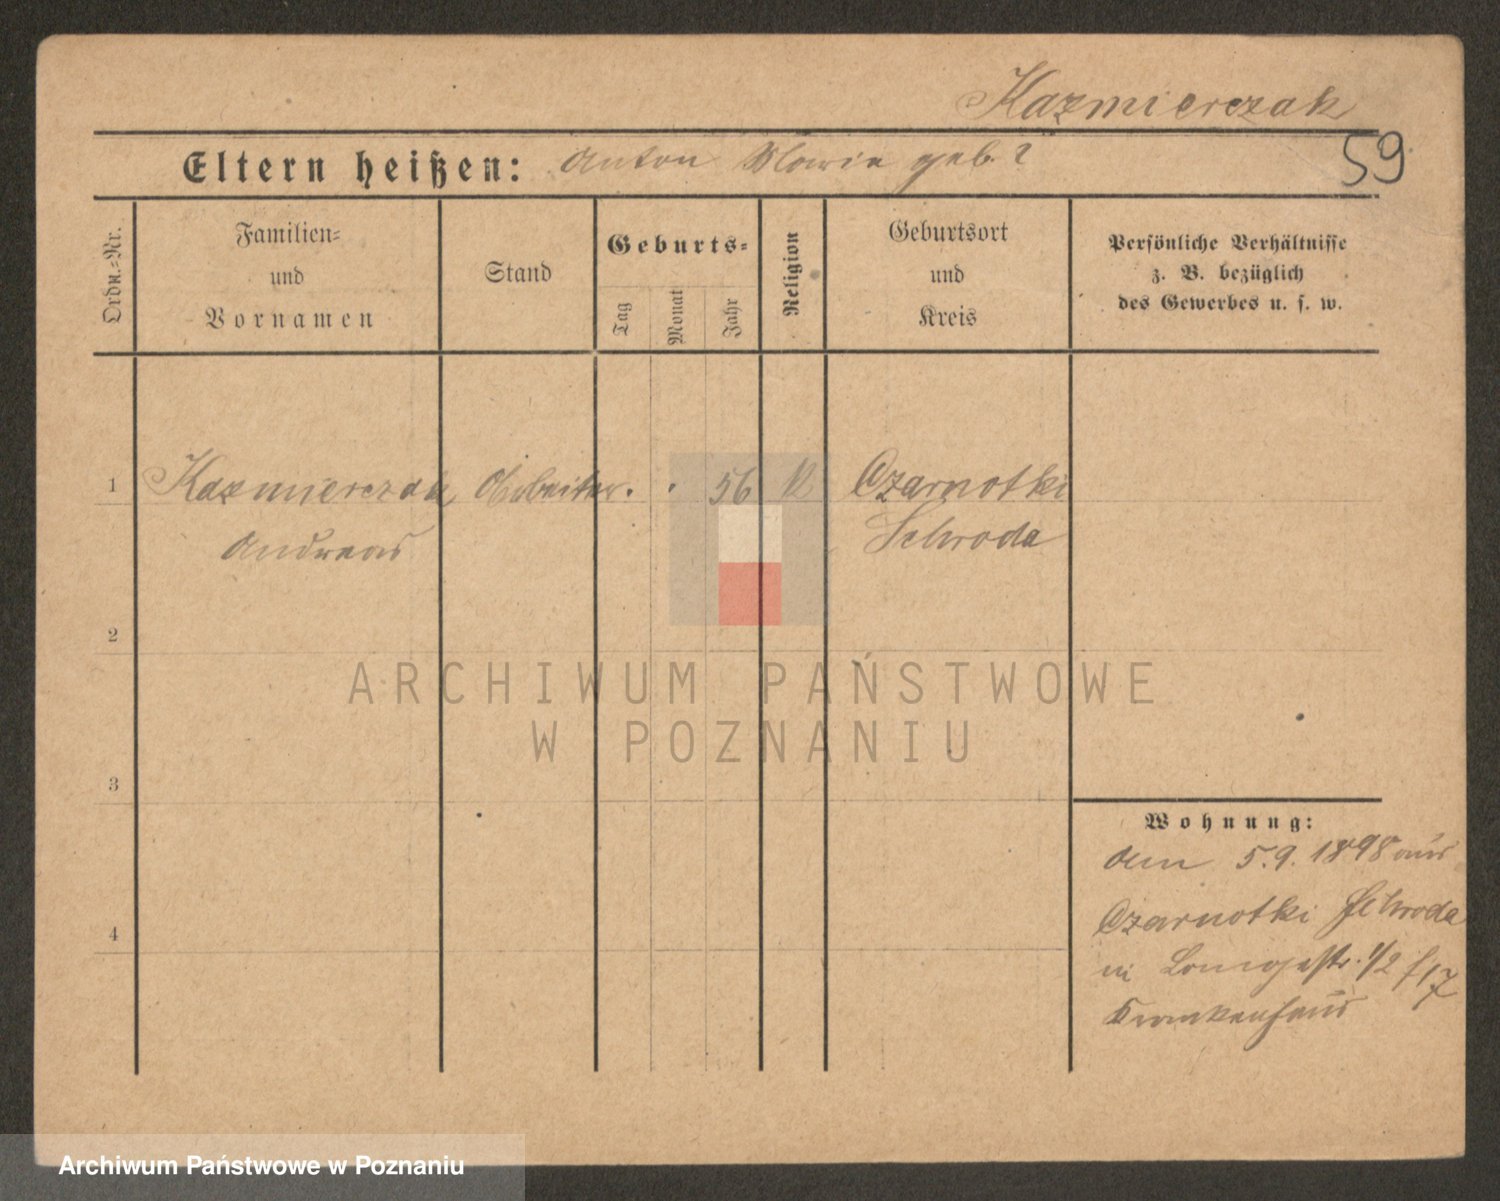 Kazmierczak
59
Eltern heißen: Anton Marie geb. ?
Ordn.-Nr.
Familien-
und
Vornamen
Stand
Geburts-
Tag
Monat
Jahr
Religion
Geburtsort
und
Kreis
Persönliche Verhältnisse
z. B. bezüglich
des Gewerbes u. s. w.
1 Kazmierczak Arbeiter . . 56 K Czarnotki
Andreas Schroda
2
ARCHIWUM PAŃSTWOWE
W POZNANIU
3
Wohnung:
den 5.9. 1898 aus
Czarnotki Schroda
4
in Langestr. 1/2
Krankenhaus
Archiwum Państwowe w Poznaniu